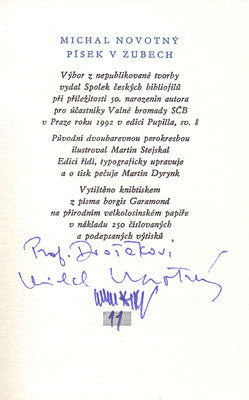 MICHAL NOVOTNÝ
PÍSEK V ZUBECH
Výbor z nepublikované tvorby
vydal Spolek českých bibliofilů
při příležitosti 50. narozenin autora
pro účastníky Valné hromady SČB
v Praze roku 1992 v edici Pupilla, sv. 8
Původní dvoubarevnou perokresbou
ilustroval Martin Stejskal
Edici řídí, typograficky upravuje
a o tisk pečuje Martin Dyrynk
Vytištěno knihtiskem
z písma borgis Garamond
na přírodním velkolosinském papíře
v nákladu 250 číslovaných
a podepsaných výtisků
Prof. Dvořákovi
Michal Novotný
11